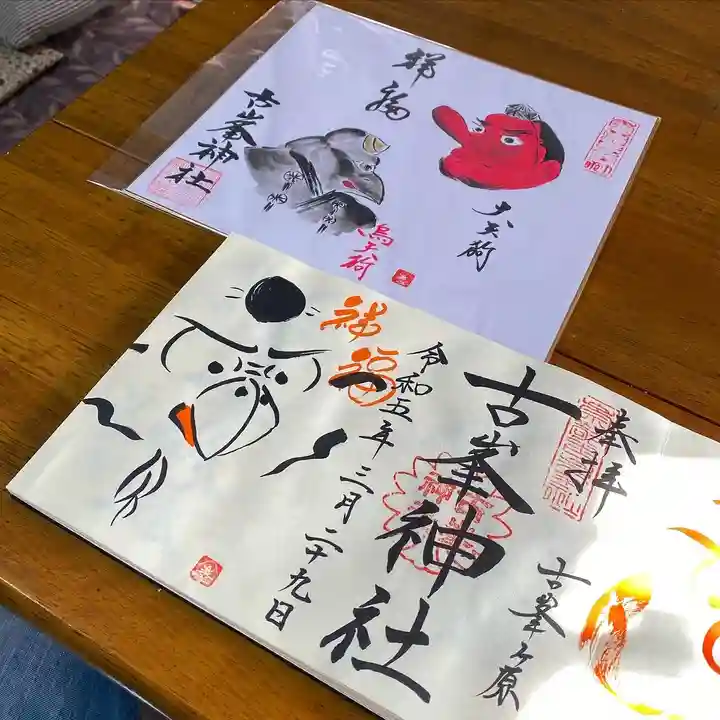 祥福
古峯神社
大天狗
烏天狗
奉拝
古峯ヶ原
古峯神社
令和五年三月二十九日
禅福